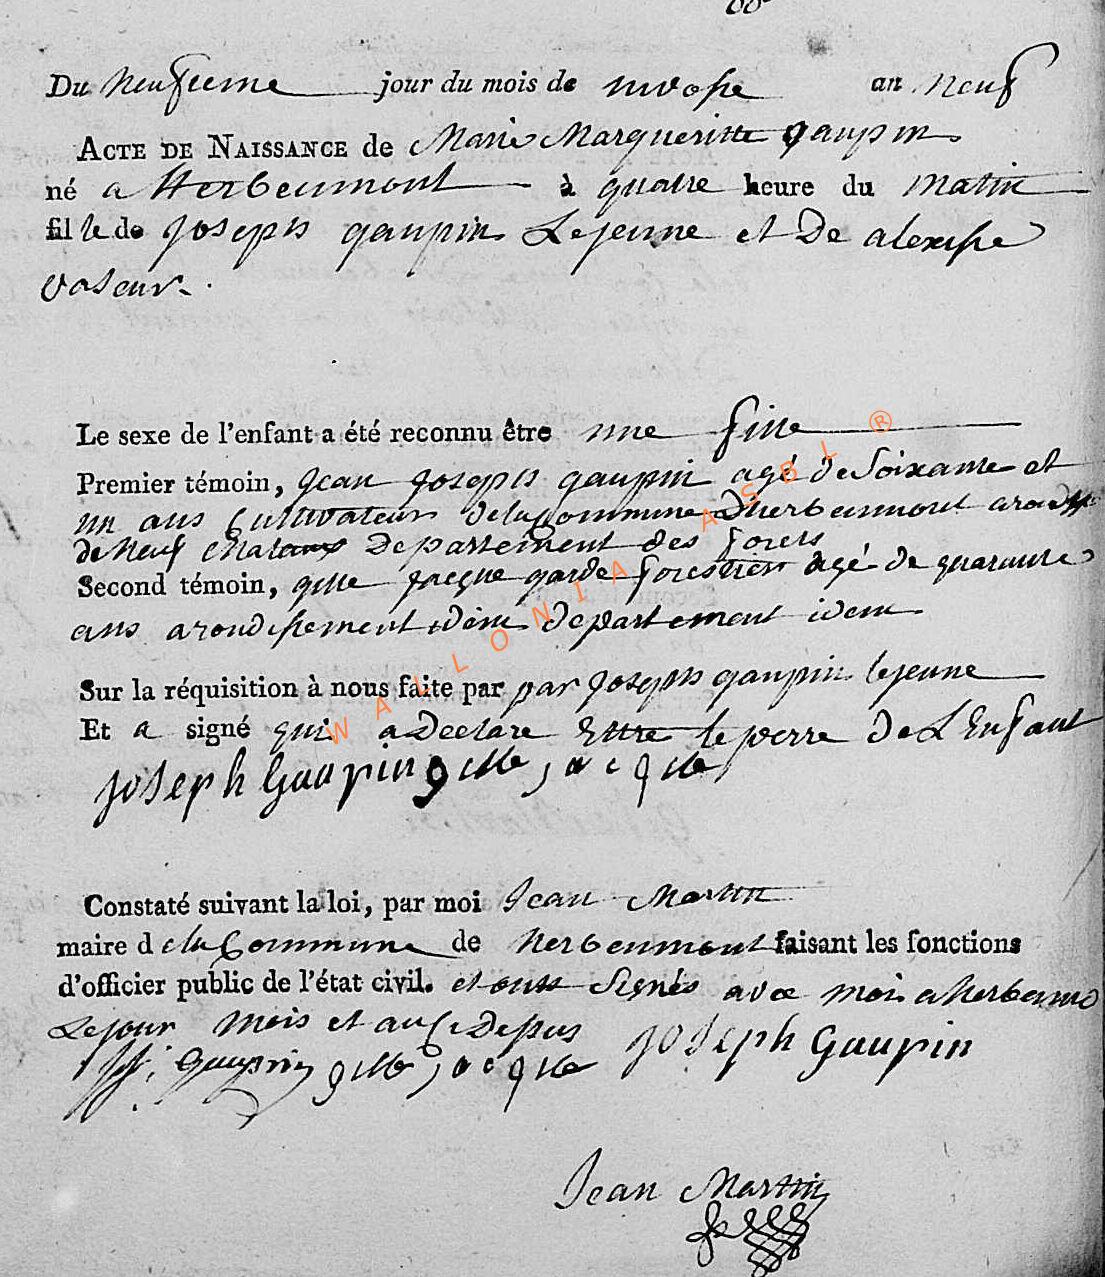 Du neufieme jour du mois de nivose an neuf
ACTE DE NAISSANCE de Marie Margueritte gaupin
né a Herbeumont à quatre heure du matin
fille de joseph gaupin Lejeune et De alexise
vaseur.
Le sexe de l'enfant a été reconnu être une fille
Premier témoin, jean joseph gaupin agé de Soixante et
un ans Cultivateur delacommune d'herbeumont
de Neuf chateaux Departement des forets
Second témoin, gille jacque garde forestier agé de quarante
ans arondisement idem departement idem
Sur la réquisition à nous faite par par joseph gaupin lejeune
Et a signé qui a Declare Ettre le perre De L'Enfant
joseph Gaupin gille jacque
Constaté suivant la loi, par moi Jean Martin
maire delaCommune de herbeumont faisant les fonctions
d'officier public de l'état civil. et ont Signés avec moi a herbeumo
Lejour mois et an Ci Depus
jj. gaupin gille jacque joseph Gaupin
Jean Martin
WALLONIA ASBL ®